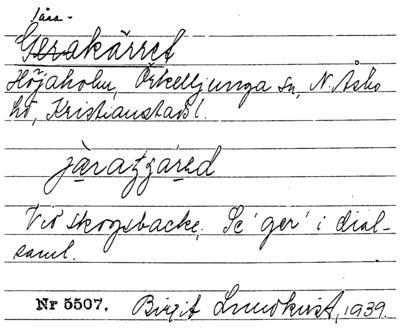 Jära-
Gerakärret
Höjaholm, Örkelljunga sn, N. Åsbo
hd, Kristianstads l.
järatjared
Vid skogsbacke. Se 'ger' i dial-
saml.
Nr 5507. Birgit Lundkvist, 1939.